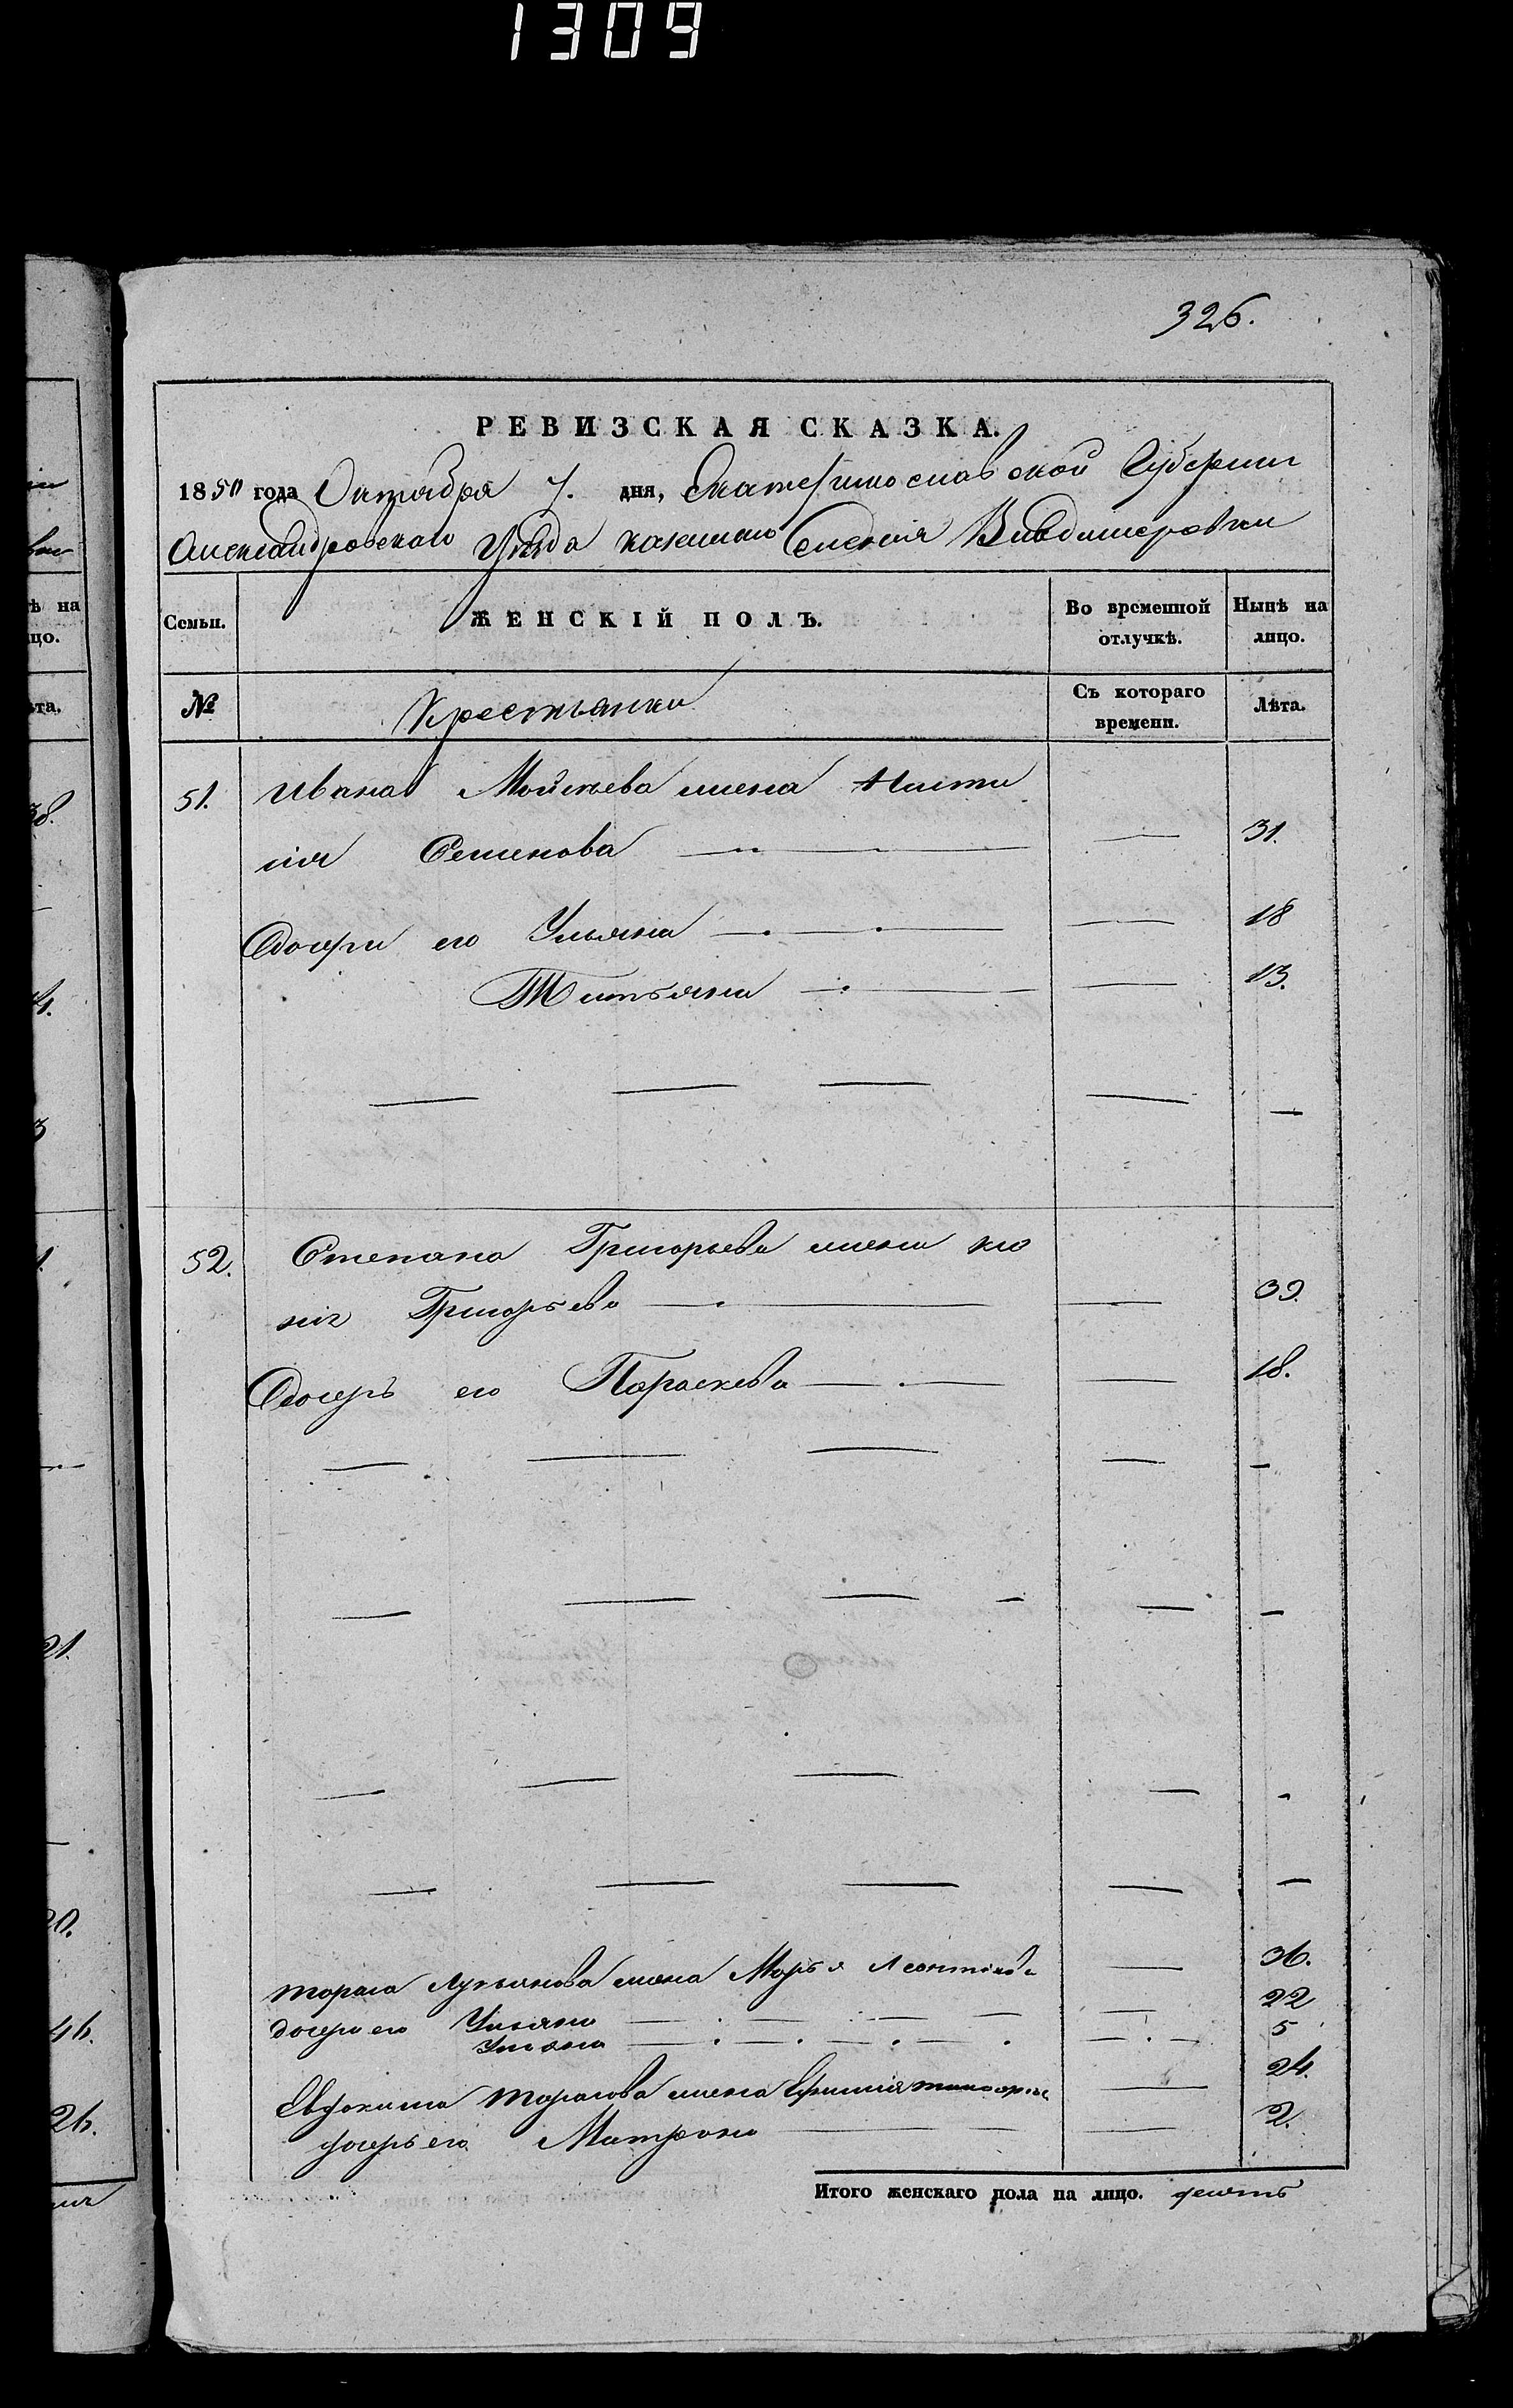 1309
326.
РЕВИЗСКАЯ СКАЗКА.
1850 года Октября 7. дня, Екатеринославской Губернии
Александровскаго Уезда казеннаго Селения
Семьи. ЖЕНСКІЙ ПОЛЪ. Во временной отлучкѣ. Нынѣ на лицо.
№ Крестьянки Съ котораго времени. Лѣта.
51. Ивана Мойсеева жена Наста
сія Семенова — — 31.
Дочери его Ульяна — — 18
Татьяна — — 13.
52. Степана Григорьева жена
Григорьева — — 39.
Дочерь его Параскева — — 18.
Тараса Лукьянова жена Марья Леонтіева — 36.
дочери его Ульяна — — 22
Ульяна — — 5
Евдокима Тарасова жена — 24.
дочерь его Матрона — — 2.
Итого женскаго пола на лицо. десять